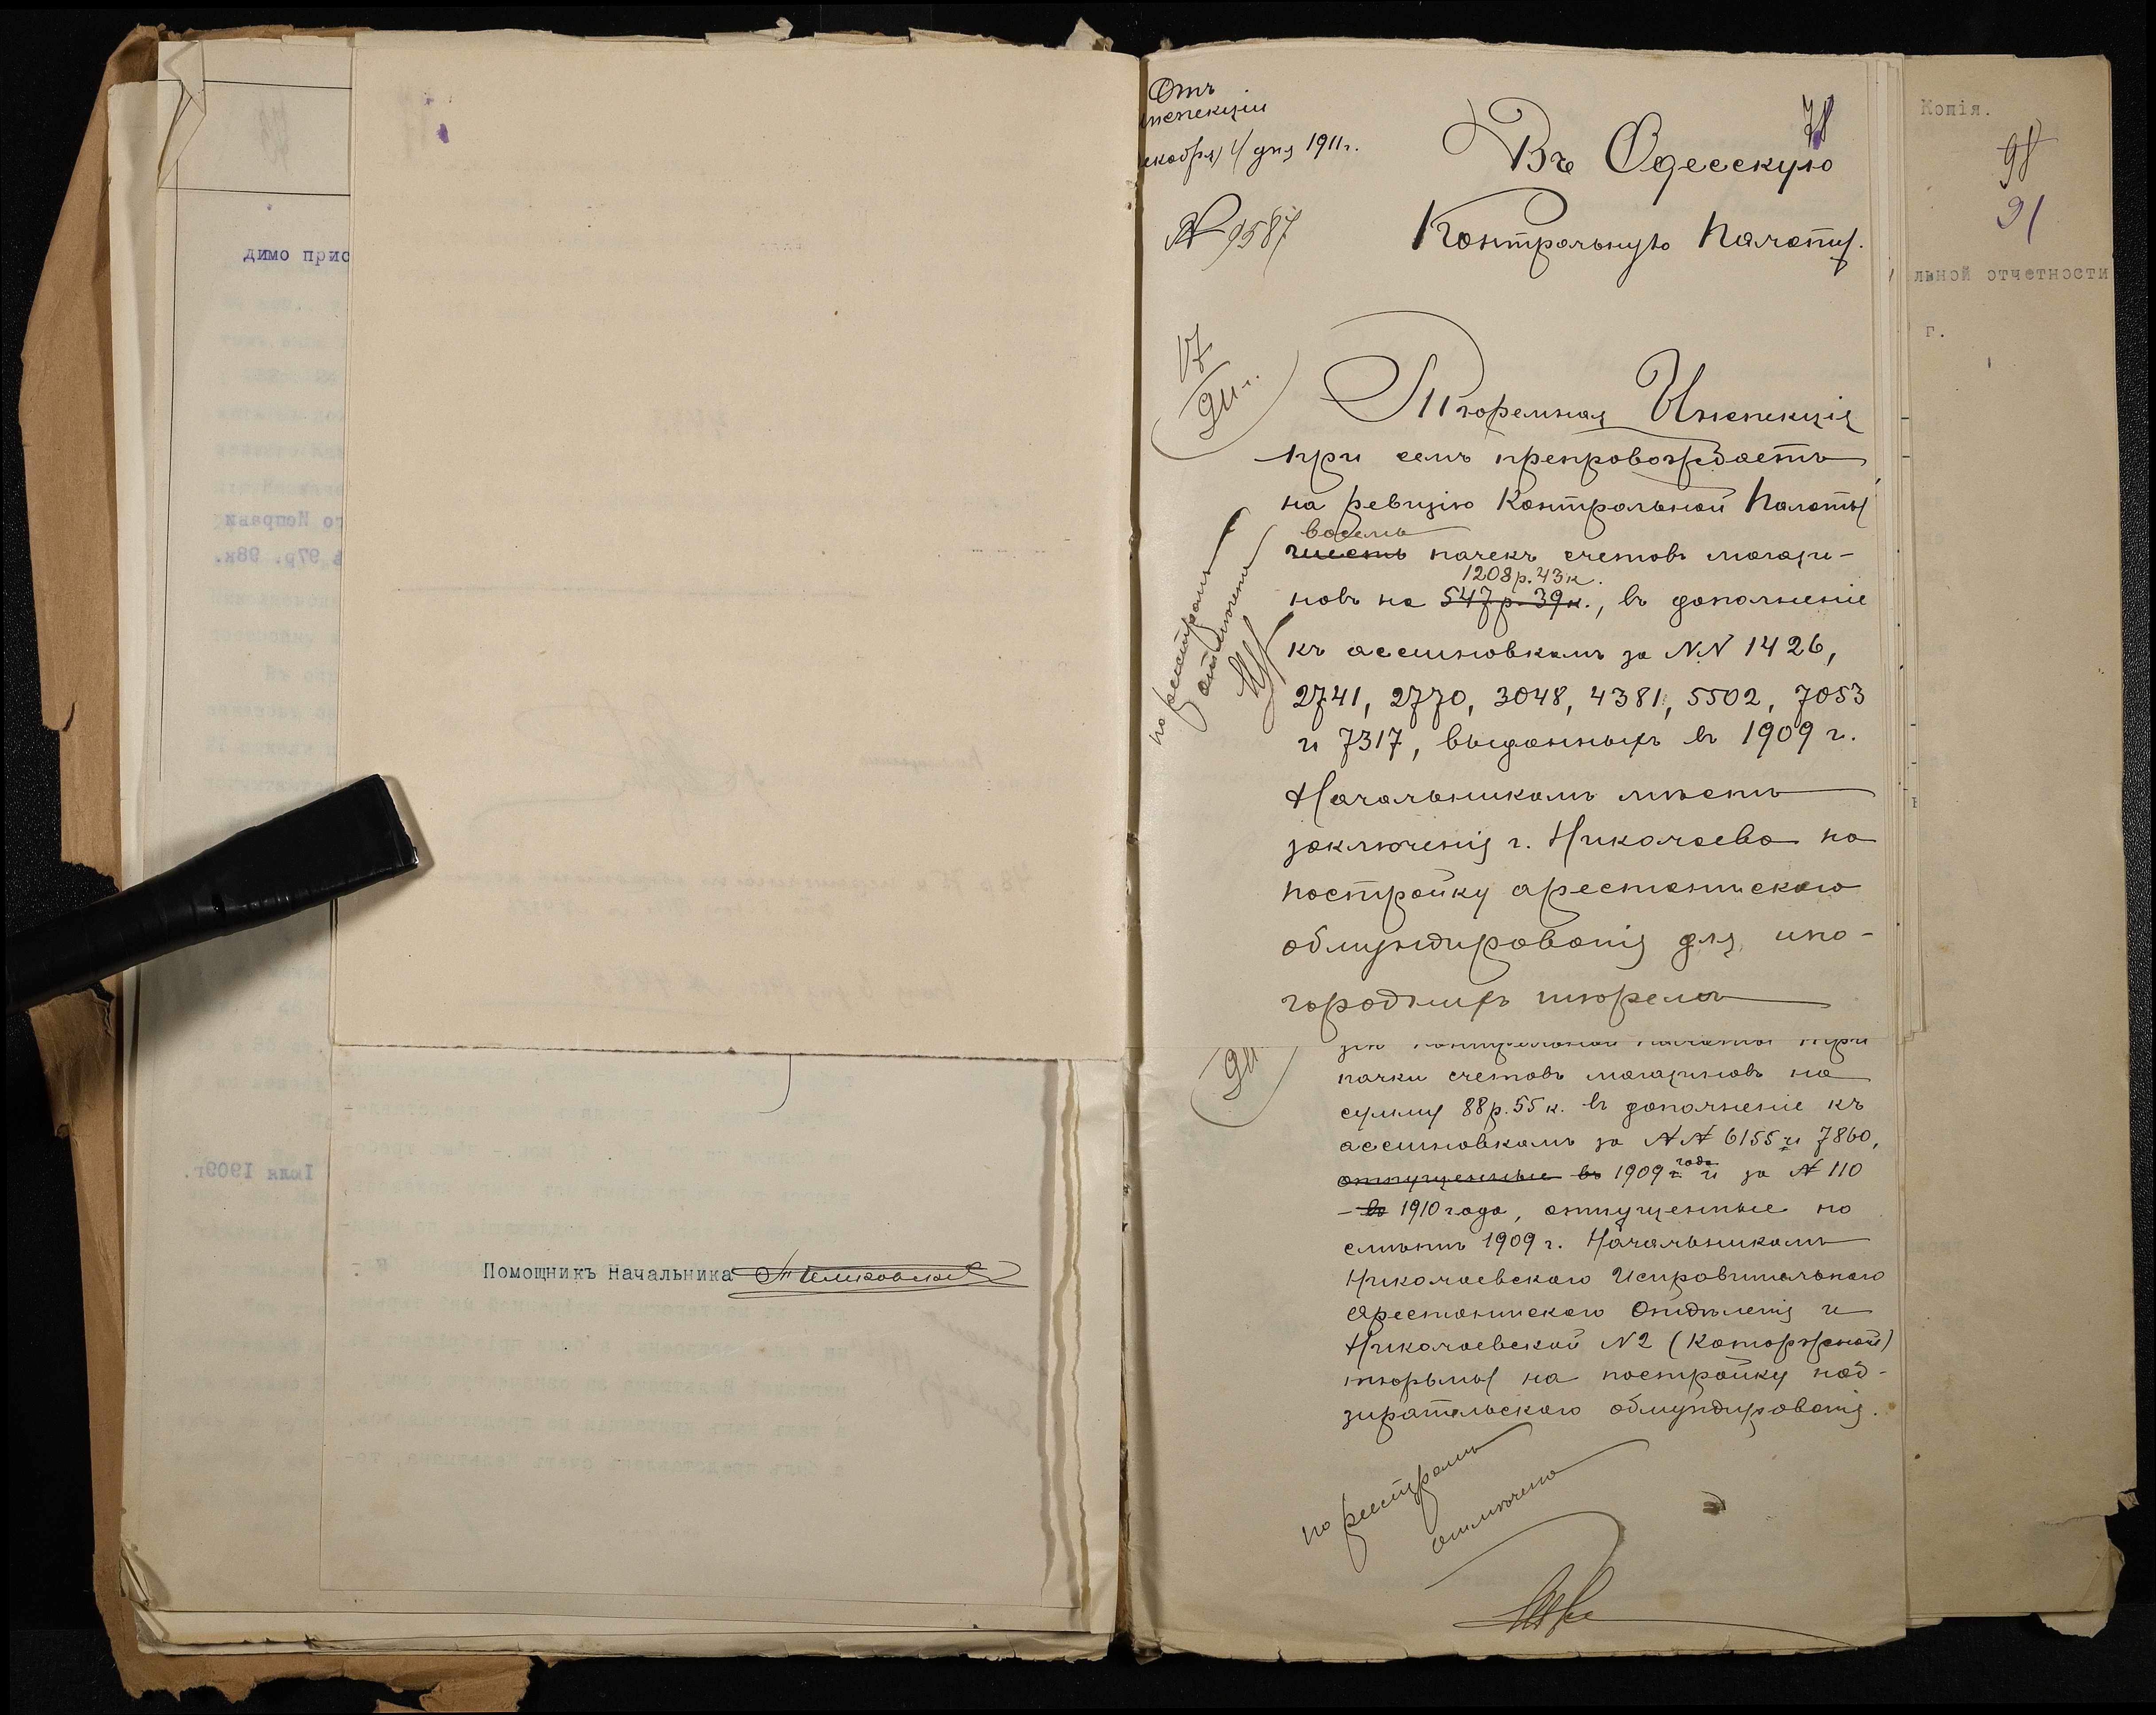 димо прис
Помощникъ Начальника
Отъ
инспекціи
декабря 4 дня 1911 г.
№ 9587
78
Въ Одесскую
Контрольную Палату.
17
911 г.
Тюремная Инспекція
при семъ препровождаетъ
на ревизію Контрольной Палаты
восемь
шесть пачекъ счетовъ магази-
1208 р. 43 к.
новъ на 547 р. 39 к., въ дополненіе
къ ассигновкамъ за NN 1426,
2741, 2770, 3048, 4381, 5502, 7053
и 7317, выданныхъ въ 1909 г.
Начальникамъ мѣстъ
заключенія г. Николаева на
постройку арестантскаго
обмундированія для ино-
городнихъ тюремъ
по реестрамъ
отмѣчено
911
пачки счетовъ магазиновъ на
сумму 88 р. 55 к. въ дополненіе къ
ассигновкамъ за №№ 6155 и 7860,
отпущенные въ 1909 года и за № 110
- въ 1910 года, отпущенные по
смѣтѣ 1909 г. Начальникамъ
Николаевскаго Исправительнаго
Арестантскаго Отдѣленія и
Николаевской №2 (Каторжной)
тюрьмы на постройку над-
зирательскаго обмундированія.
по реестрамъ
отмѣчено
Копія.
98
91
льной отчетности
г.